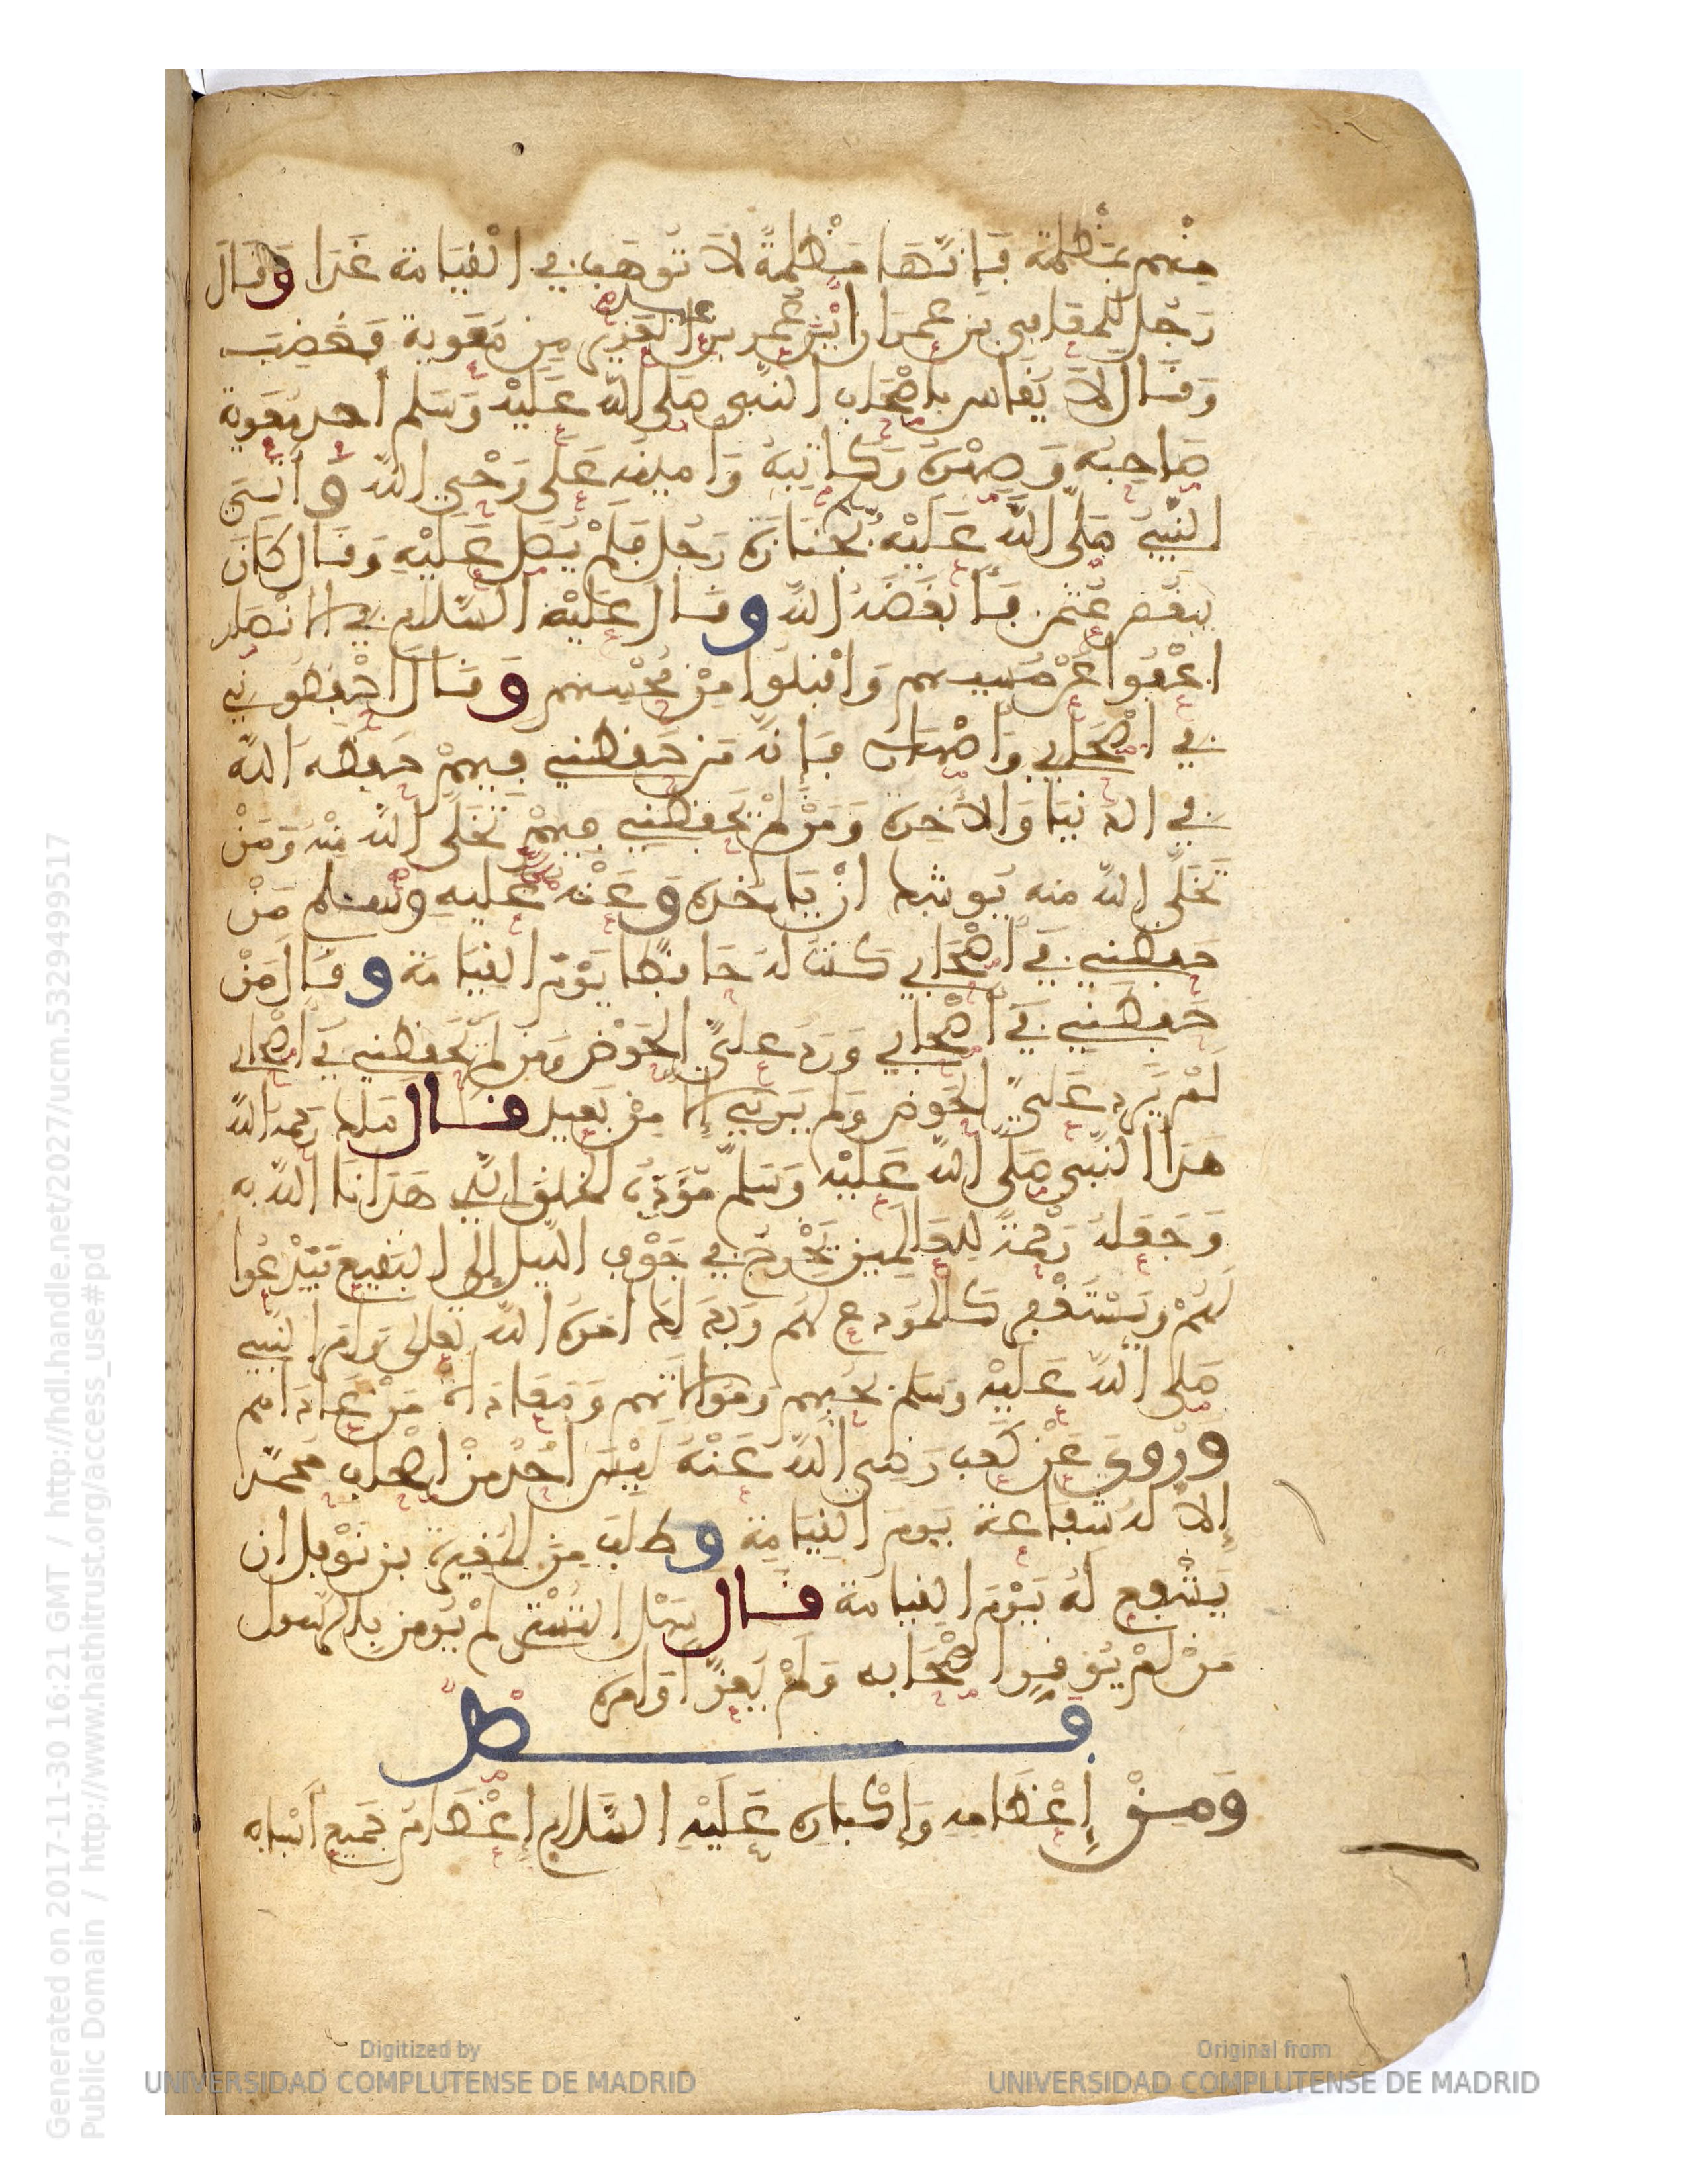 منهم بمظلمة فإنها مظلمة لا توهب في القيامة غدا وقال
رجل للمعافى بن عمران أين عمر بن عبد العزيز من معوية فغضب
وقال لا يقاس بأصحاب النبي صلى الله عليه وسلم أحد معوية
صاحبه وصهره وكاتبه وأمينه على وحي الله وأتي
النبي صلى الله عليه بجنازة رجل فلم يصل عليه وقال كان
يبغض عثمن فأبغضه الله وقال عليه السلام في الانصار
اعفوا عن مسيئهم واقبلوا من محسنهم وقال احفظوني
في أصحابي وأصهاري فإنه من حفظني فيهم حفظه الله
في الدنيا والآخرة ومن لم يحفظني فيهم تخلى الله منه ومن
تخلى الله منه يوشك أن يأخذه وعنه عليه وسلم من
حفظني في أصحابي كنت له حافظا يوم القيامة وقال من
حفظني في أصحابي ورد علي الحوض ومن لم يحفظني في أصحابي
لم يرد علي الحوض ولم يرني إلا من بعيد قال ملك رحمه الله
هذا النبي صلى الله عليه وسلم مؤدب الخلق الذي هدانا الله به
وجعله رحمة للعالمين يخرج في جوف الليل إلى البقيع فيدعوا
لهم ويستغفر كالمودع لهم وبذلك أمره الله تعالى وأمر النبي
صلى الله عليه وسلم بحبهم وموالاتهم ومعاداة من عاداهم
وروي عن كعب رضي الله عنه ليس أحد من أصحاب محمد
إلا له شفاعة يوم القيامة وطلب من المغيرة بن نوفل ان
يشفع له يوم القيامة قال سهل التستري لم يومن بالرسول
من لم يوقر أصحابه ولم يعز أوامره
فصل
ومن إعظامه وإكباره عليه السلام إعظام جميع أسبابه
Generated on 2017-11-30 16:21 GMT / http://hdl.handle.net/2027/ucm.5329499517
Public Domain / http://www.hathitrust.org/access_use#pd
Digitized by
UNIVERSIDAD COMPLUTENSE DE MADRID
Original from
UNIVERSIDAD COMPLUTENSE DE MADRID